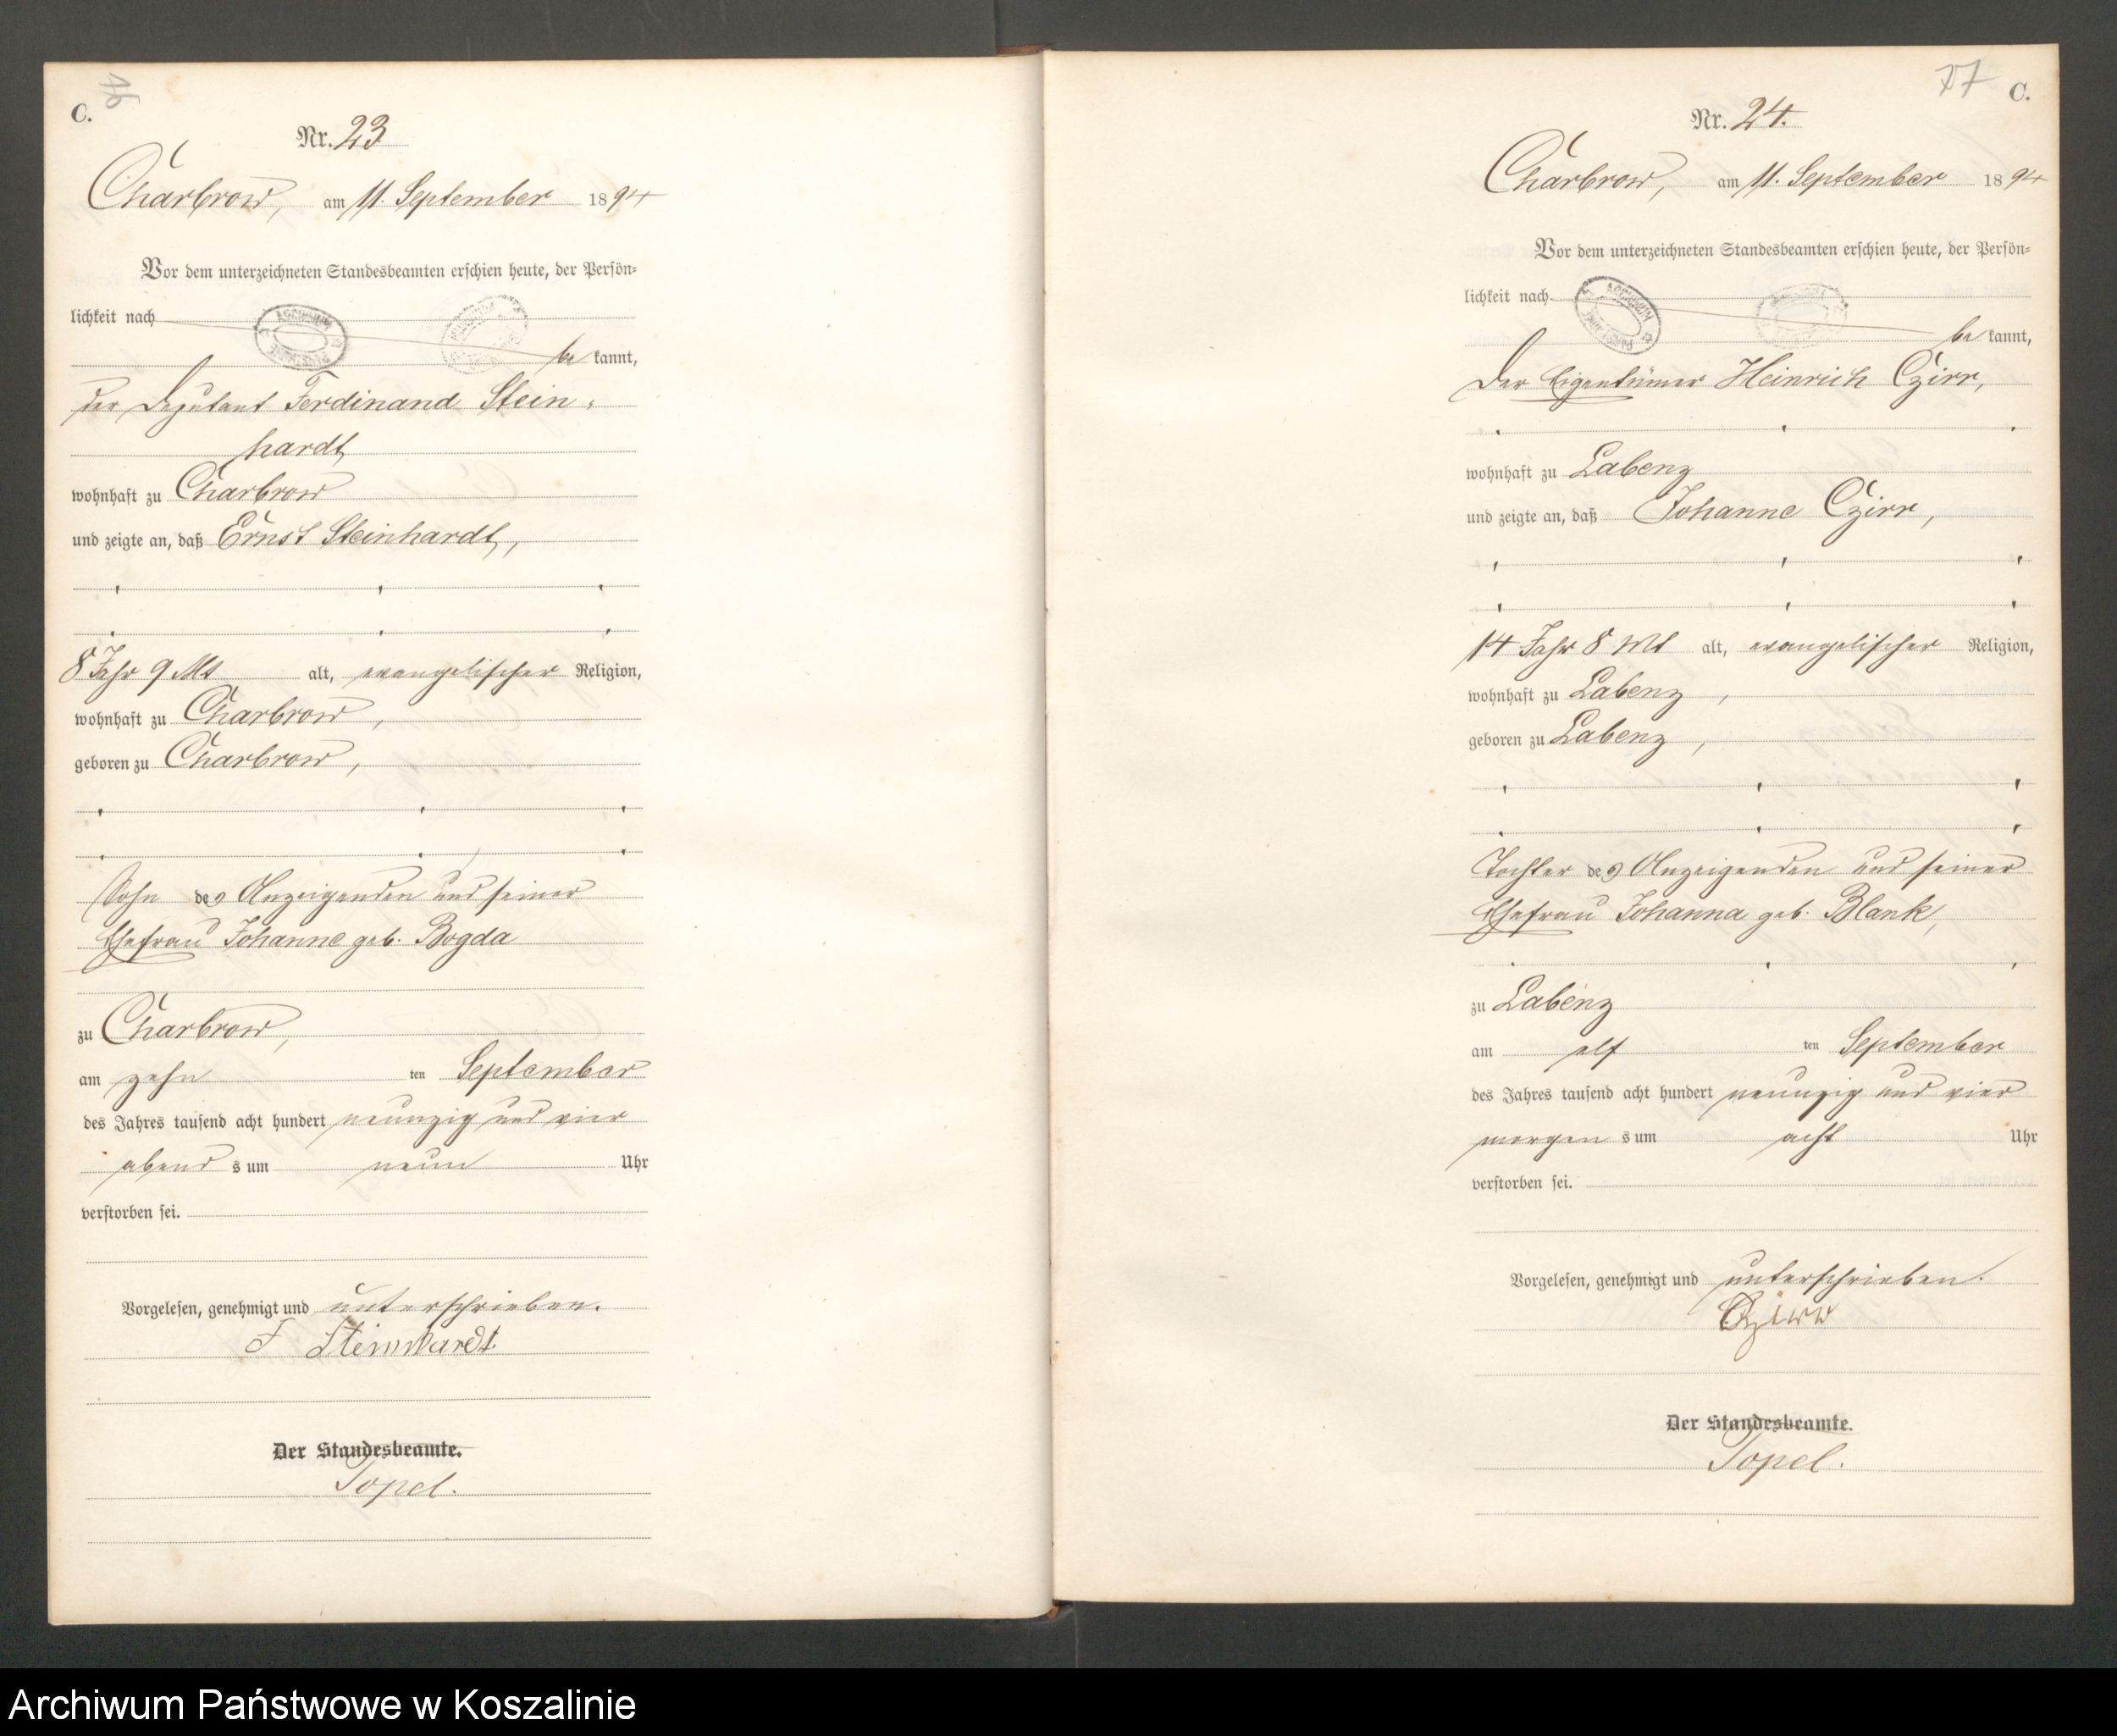 C. 16
Nr. 23
Charbrow, am 11. September 1894
Vor dem unterzeichneten Standesbeamten erschien heute, der Persön-
lichkeit nach
be kannt,
der Deputant Ferdinand Stein-
hardt
wohnhaft zu Charbrow
und zeigte an, daß Ernst Steinhardt,
8 Jahr 9 Mt alt, evangelischer Religion,
wohnhaft zu Charbrow,
geboren zu Charbrow,
Sohn des Anzeigenden und seiner
Ehefrau Johanne geb. Bogda
zu Charbrow,
am zehn ten September
des Jahres tausend acht hundert neunzig und vier
abend s um neun Uhr
verstorben sei.
Vorgelesen, genehmigt und unterschrieben.
F Steinhardt
Der Standesbeamte.
Topel.
17 C.
Nr. 24.
Charbrow, am 11. September 1894
Vor dem unterzeichneten Standesbeamten erschien heute, der Persön-
lichkeit nach
be kannt,
Der Eigentümer Heinrich Czirr,
wohnhaft zu Labenz
und zeigte an, daß Johanne Czirr,
14 Jahr 8 Mt alt, evangelischer Religion,
wohnhaft zu Labenz,
geboren zu Labenz,
Tochter des Anzeigenden und seiner
Ehefrau Johanna geb. Blank,
zu Labenz
am elf ten September
des Jahres tausend acht hundert neunzig und vier
morgen s um acht Uhr
verstorben sei.
Vorgelesen, genehmigt und unterschrieben.
Czirr
Der Standesbeamte.
Topel.
Archiwum Państwowe w Koszalinie